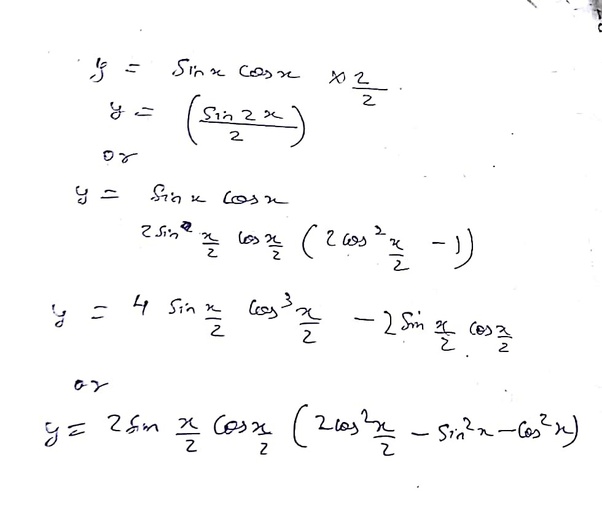 y = Sin x cos x × 2/2
y = (Sin 2x/2)
or
y = Sin x cos x
2 Sin x/2 cos x/2 (2 cos² x/2 - 1)
y = 4 Sin x/2 cos³ x/2 - 2 Sin x/2 cos x/2
or
y = 2 Sin x/2 cos x/2 (2 cos² x/2 - Sin² x - cos² x)